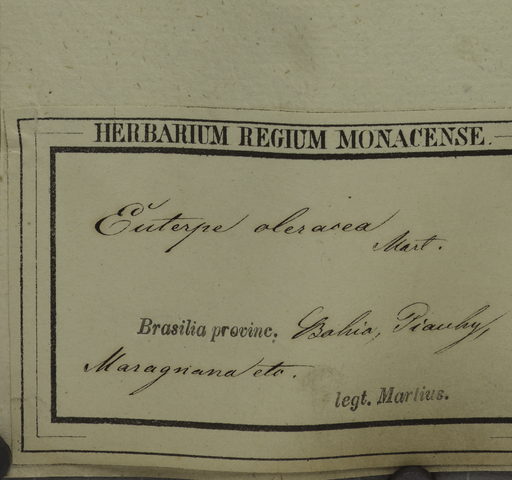 HERBARIUM REGIUM MONACENSE.
Euterpe oleracea
Mart.
Brasilia provinc. Bahia, Piauhy,
Maragnana etc.
legt. Martius.